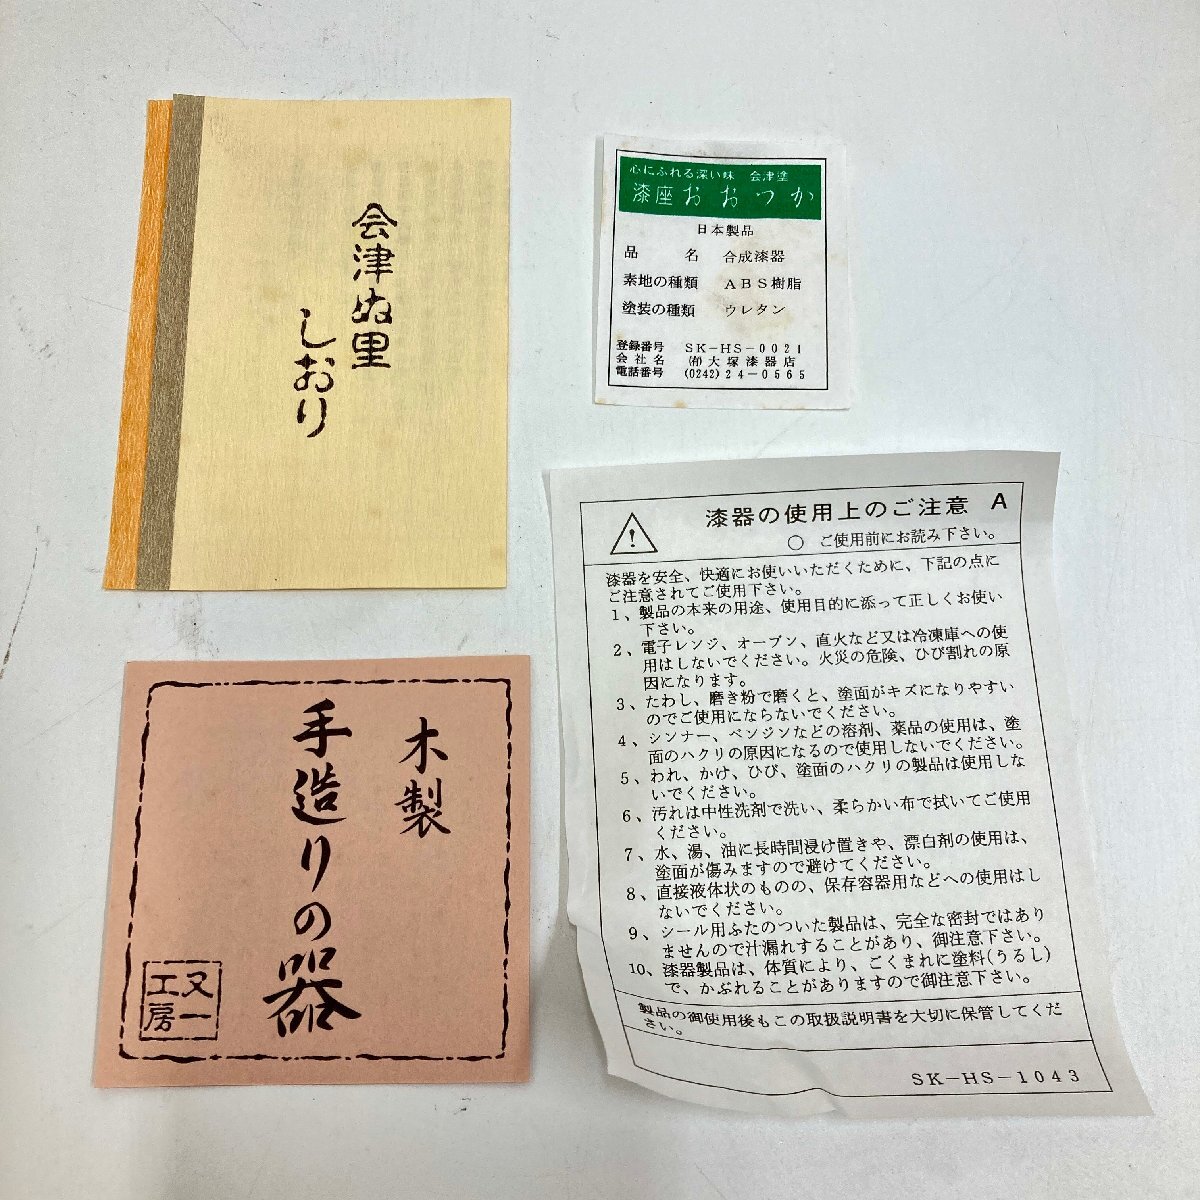 会津ぬ里
しおり
心にふれる深い味 会津塗
漆座おおつか
日本製品
品名 合成漆器
素地の種類 ABS樹脂
塗装の種類 ウレタン
登録番号 SK-HS-0021
会社名 (有)大塚漆器店
電話番号 (0242)24-0565
木製
手造りの器
又一
工房
漆器の使用上のご注意 A
○ ご使用前にお読み下さい。
漆器を安全、快適にお使いいただくために、下記の点に
ご注意されてご使用下さい。
1、製品の本来の用途、使用目的に添って正しくお使い
下さい。
2、電子レンジ、オーブン、直火など又は冷凍庫への使
用はしないでください。火災の危険、ひび割れの原
因になります。
3、たわし、磨き粉で磨くと、塗面がキズになりやすい
のでご使用にならないでください。
4、シンナー、ベンジンなどの溶剤、薬品の使用は、塗
面のハクリの原因になるので使用しないでください。
5、われ、かけ、ひび、塗面のハクリの製品は使用しな
いでください。
6、汚れは中性洗剤で洗い、柔らかい布で拭いてご使用
ください。
7、水、湯、油に長時間浸け置きや、漂白剤の使用は、
塗面が傷みますので避けてください。
8、直接液体状のものの、保存容器用などへの使用はし
ないでください。
9、シール用ふたのついた製品は、完全な密封ではあり
ませんので汁漏れすることがあり、御注意下さい。
10、漆器製品は、体質により、ごくまれに塗料(うるし)
で、かぶれることがありますので御注意下さい。
製品の御使用後もこの取扱説明書を大切に保管してくだ
さい。
SK-HS-1043